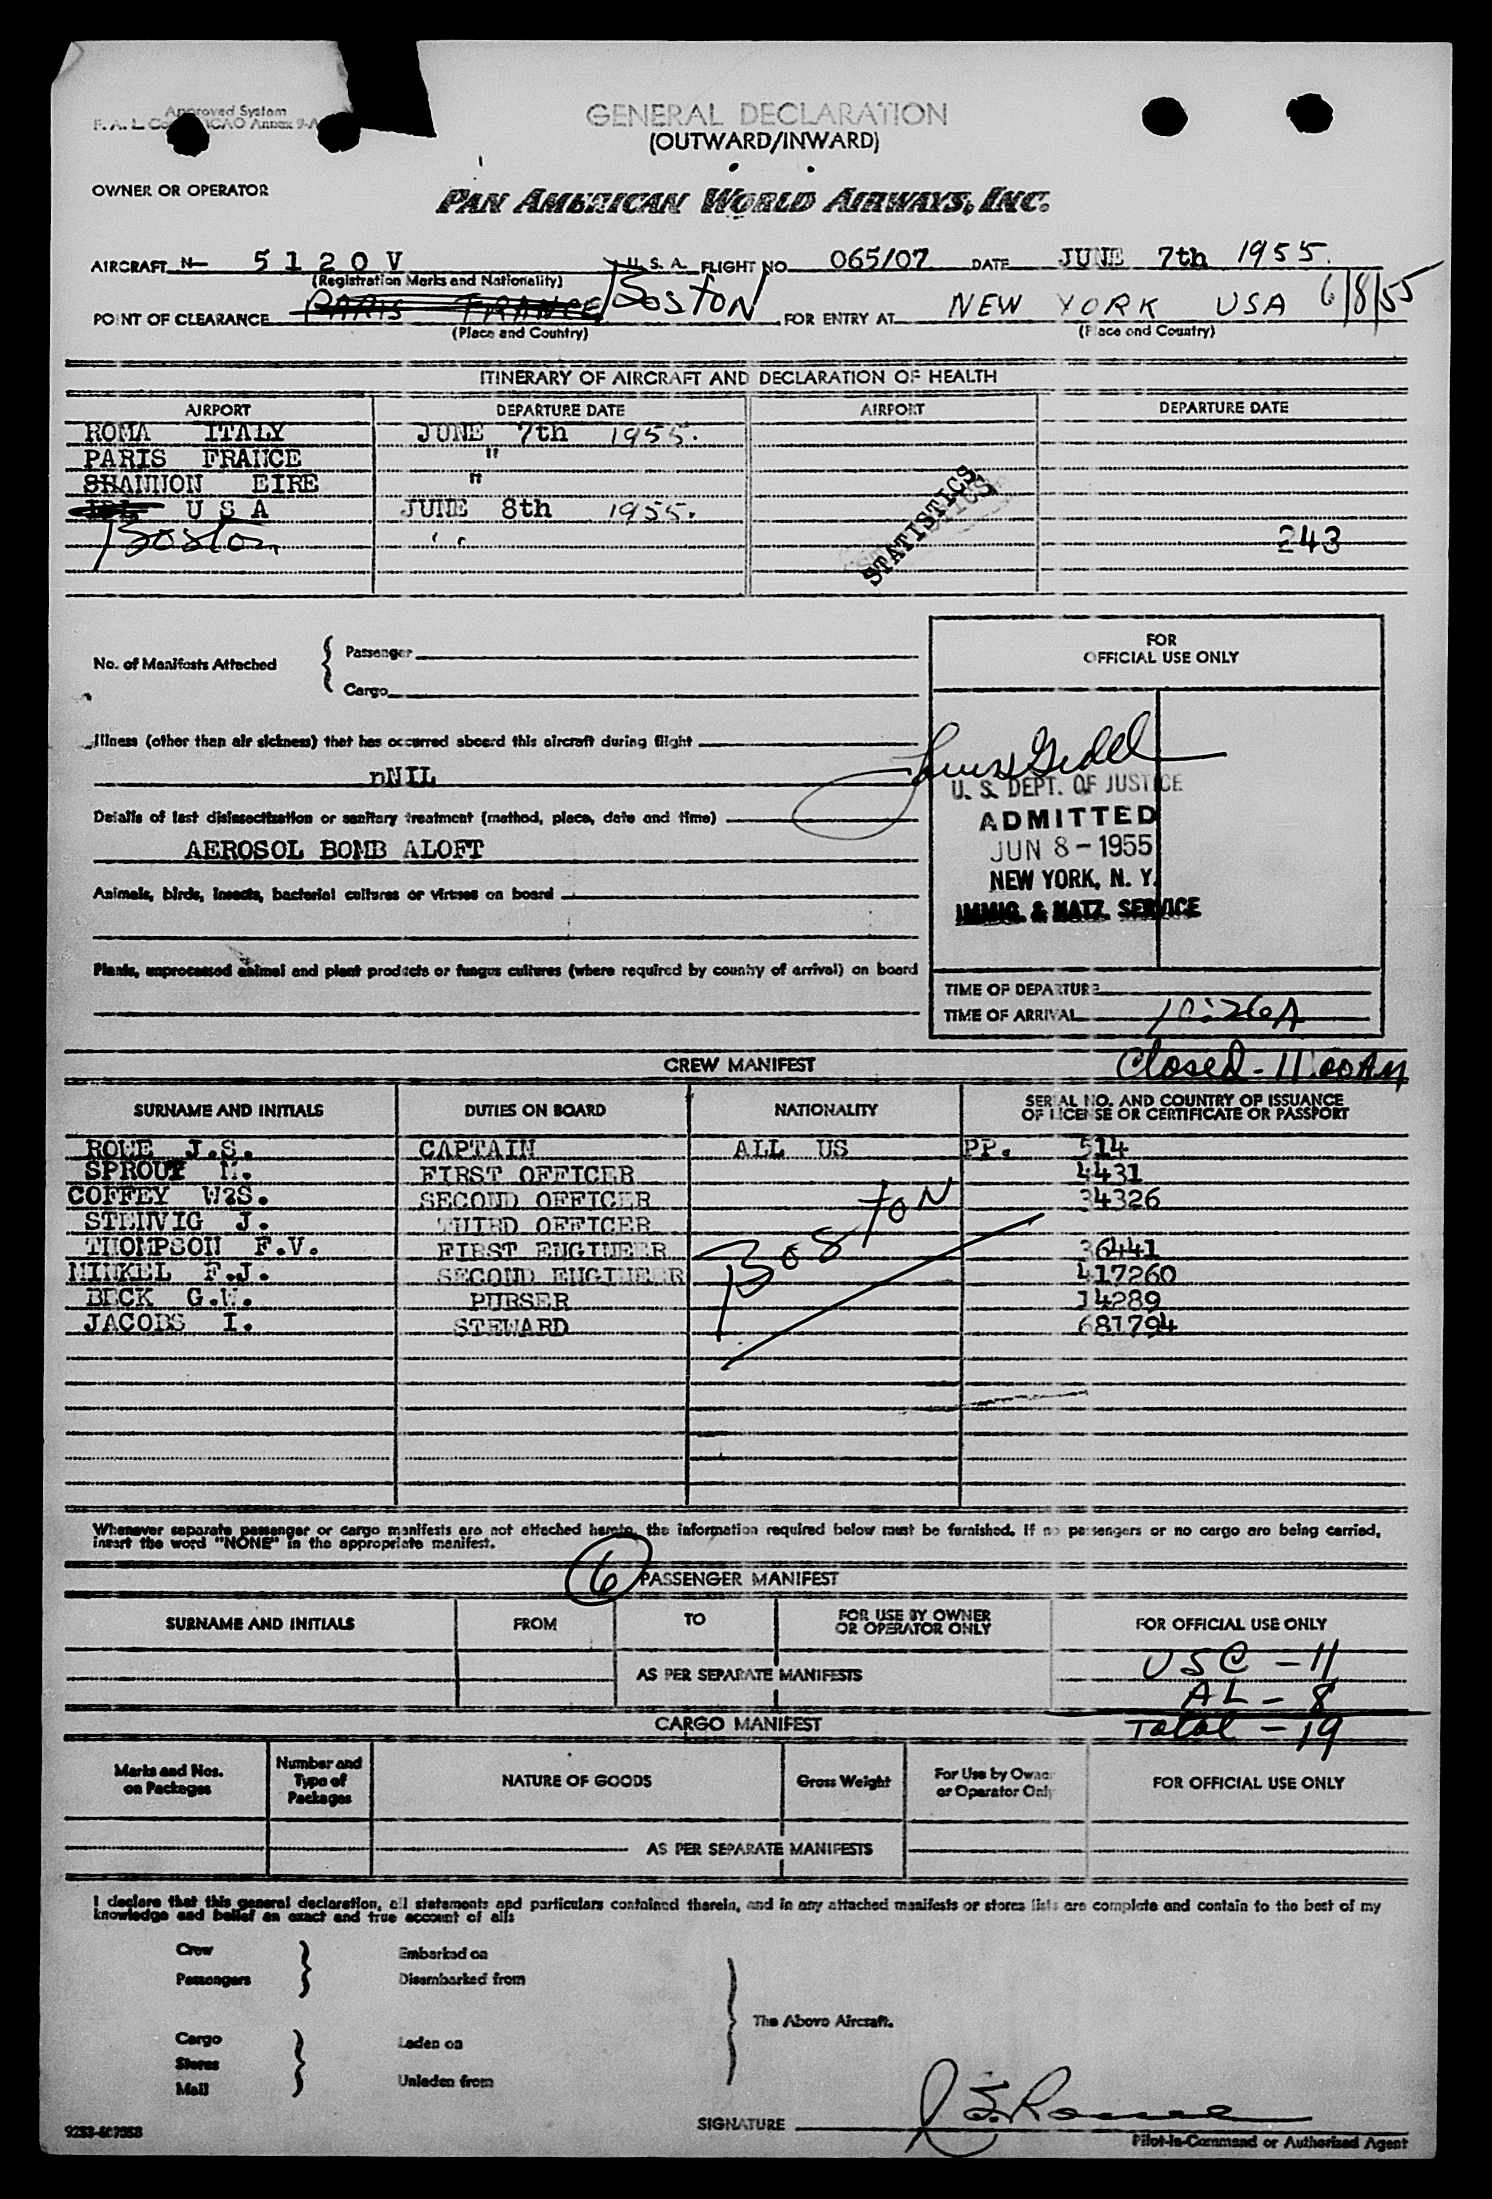 Approved System
GENERAL DECLARATION
(OUTWARD/INWARD)
OWNER OR OPERATOR
PAN AMERICAN WORLD AIRWAYS, INC.
AIRCRAFT N- 5 1 2 0 V U. S. A. FLIGHT NO. 065/07 DATE JUNE 7th 1955.
(Registration Marks and Nationality)
POINT OF CLEARANCE PARIS FRANCE Boston FOR ENTRY AT NEW YORK USA 6/8/55
(Place and Country) (Place and Country)
ITINERARY OF AIRCRAFT AND DECLARATION OF HEALTH
AIRPORT DEPARTURE DATE AIRPORT DEPARTURE DATE
ROMA ITALY JUNE 7th 1955.
PARIS FRANCE "
SHANNON EIRE "
IDL U S A JUNE 8th 1955.
Boston " 243
STATISTICS
FOR
OFFICIAL USE ONLY
No. of Manifests Attached
Passenger
Cargo
Illness (other than air sickness) that has occurred aboard this aircraft during flight
nNIL
Details of last disinsectization or sanitary treatment (method, place, date and time)
AEROSOL BOMB ALOFT
Animals, birds, insects, bacterial cultures or viruses on board
Plants, unprocessed animal and plant products or fungus cultures (where required by country of arrival) on board
U. S. DEPT. OF JUSTICE
ADMITTED
JUN 8 - 1955
NEW YORK, N. Y.
IMMIG. & NATZ. SERVICE
TIME OF DEPARTURE
TIME OF ARRIVAL 10:26A
CREW MANIFEST Closed - 11:00AM
SURNAME AND INITIALS DUTIES ON BOARD NATIONALITY SERIAL NO. AND COUNTRY OF ISSUANCE
OF LICENSE OR CERTIFICATE OR PASSPORT
ROWE J.S. CAPTAIN ALL US PP. 514
SPROUT M. FIRST OFFICER 4431
COFFEY W&S. SECOND OFFICER 34326
STENVIG J. THIRD OFFICER
THOMPSON F.V. FIRST ENGINEER 36441
MINKEL F.J. SECOND ENGINEER 417260
BECK G.W. PURSER 14289
JACOBS I. STEWARD 681794
BOSTON
Whenever separate passenger or cargo manifests are not attached hereto, the information required below must be furnished. If no passengers or no cargo are being carried,
insert the word "NONE" in the appropriate manifest.
6 PASSENGER MANIFEST
SURNAME AND INITIALS FROM TO FOR USE BY OWNER
OR OPERATOR ONLY FOR OFFICIAL USE ONLY
USC - 11
AS PER SEPARATE MANIFESTS
AL - 8
CARGO MANIFEST Total - 19
Marks and Nos.
on Packages
Number and
Type of
Packages
NATURE OF GOODS Gross Weight
For Use by Owner
or Operator Only
FOR OFFICIAL USE ONLY
AS PER SEPARATE MANIFESTS
I declare that this general declaration, all statements and particulars contained therein, and in any attached manifests or stores lists are complete and contain to the best of my
knowledge and belief an exact and true account of all:
Crew Embarked on
Passengers Disembarked from
The Above Aircraft.
Cargo Laden on
Stores
Mail Unladen from
SIGNATURE J. S. Rowe
Pilot-in-Command or Authorized Agent